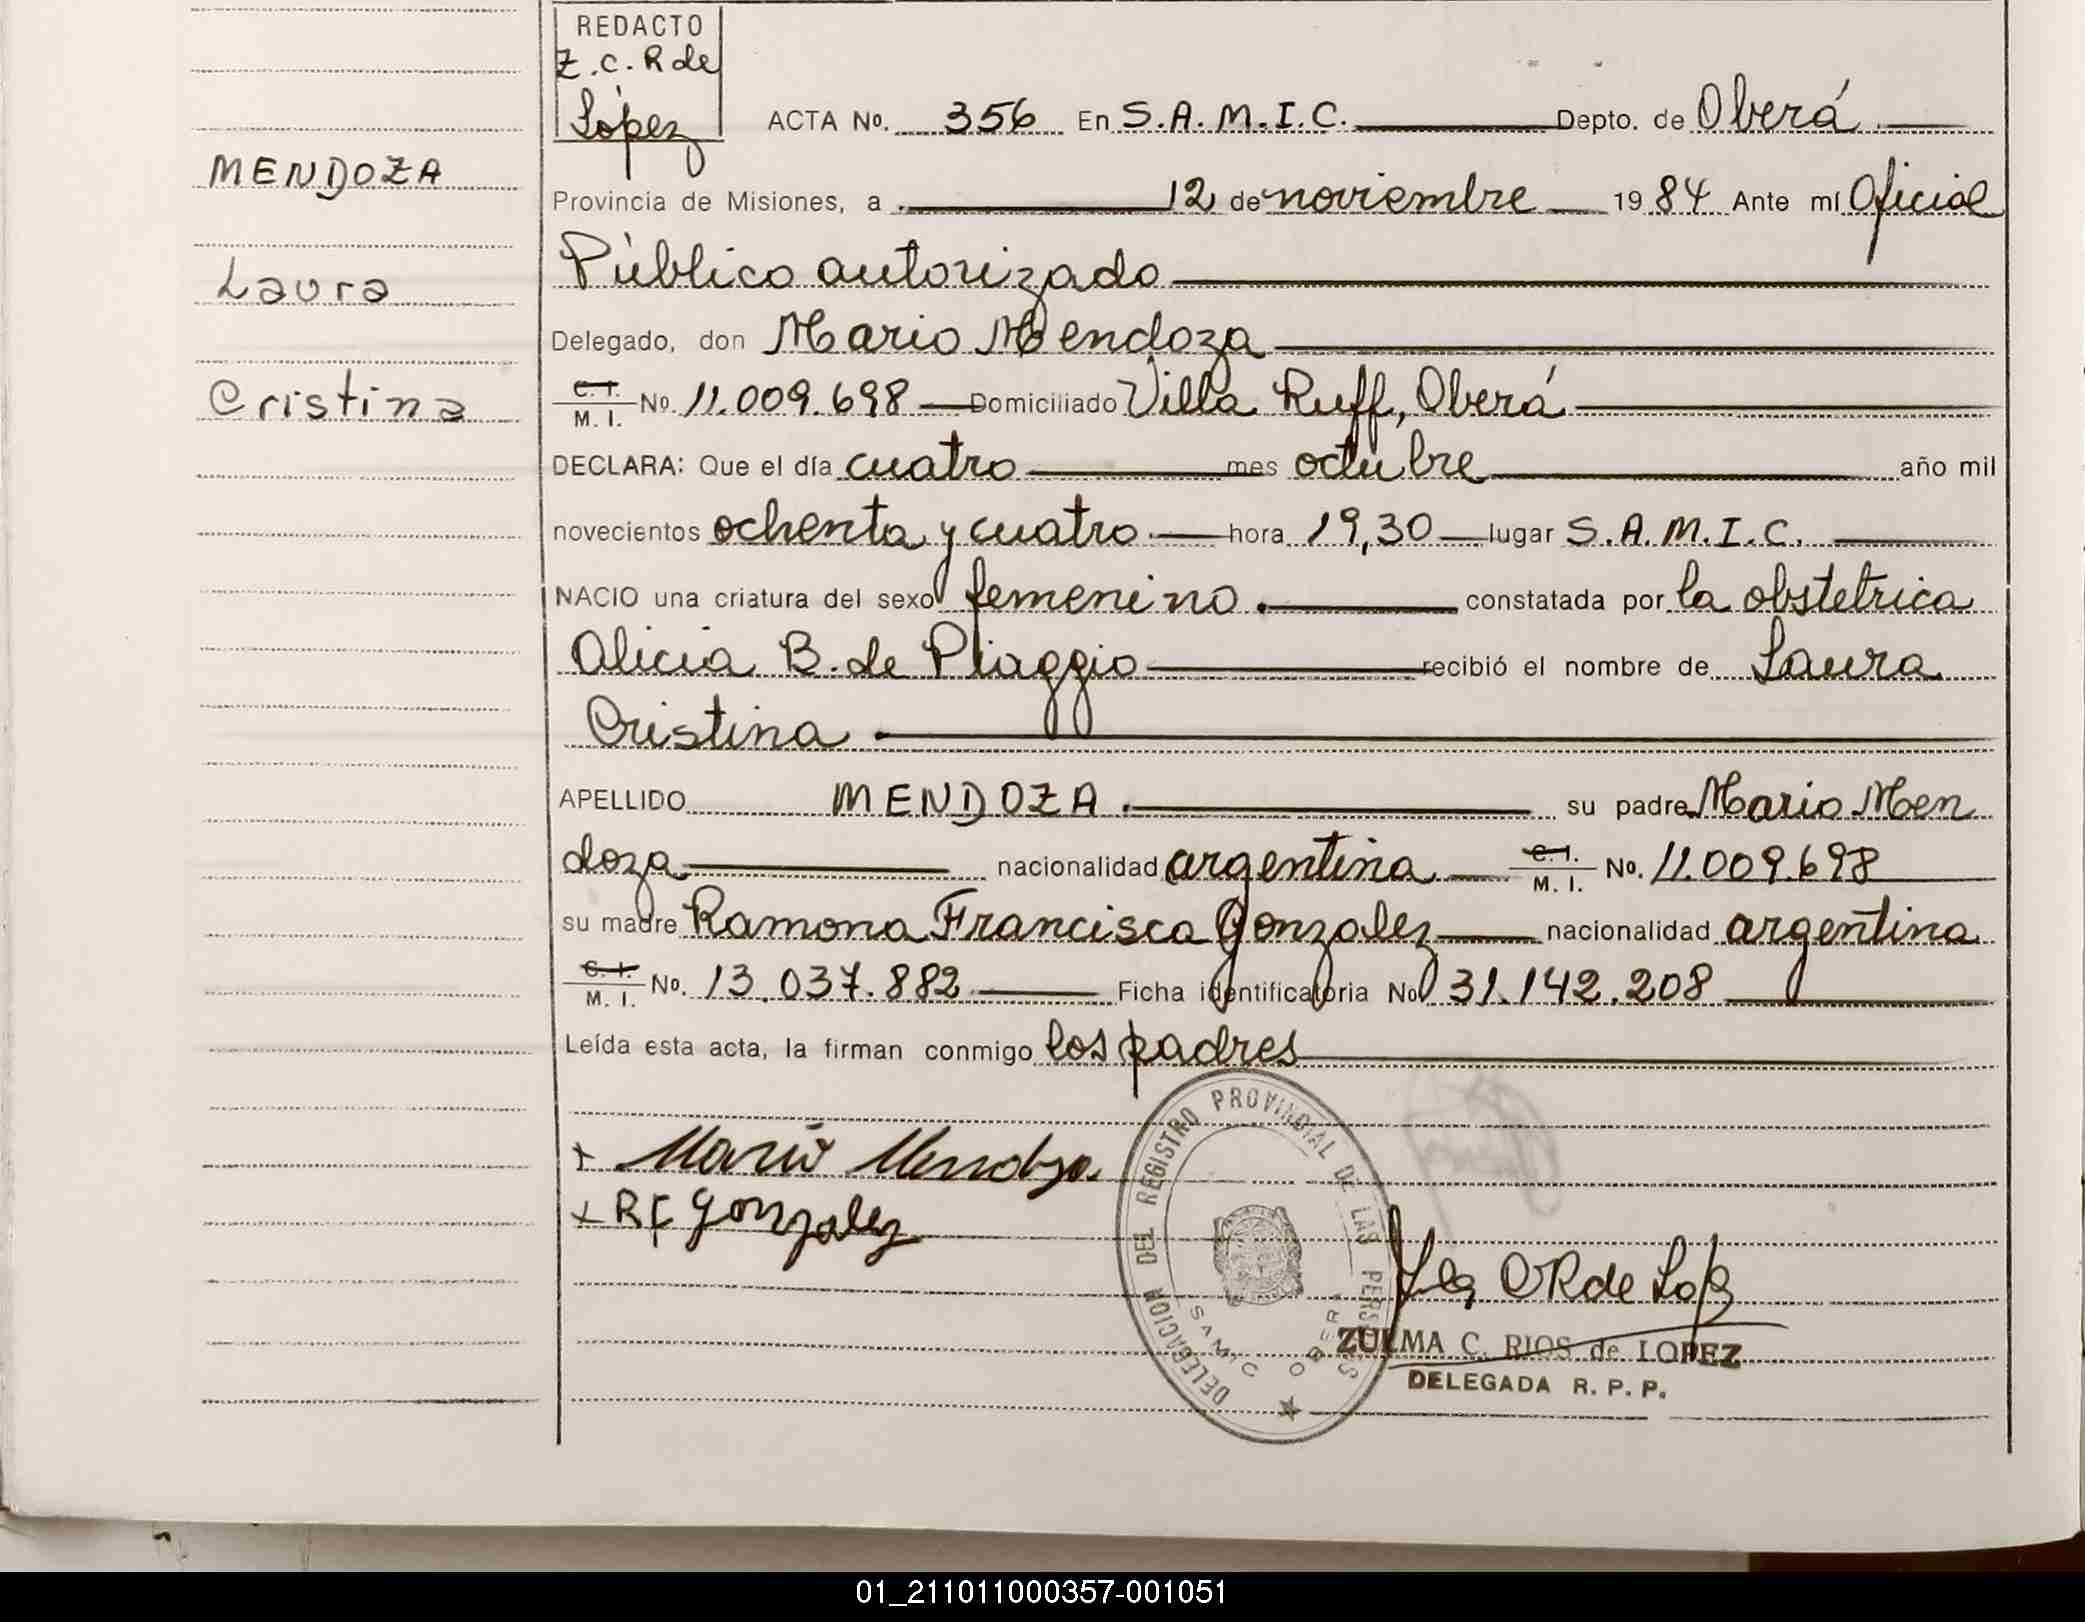 REDACTO
Z.C.R de
López
ACTA No. 356 En S.A.M.I.C. Depto. de Oberá
MENDOZA
Laura
Cristina
Provincia de Misiones, a 12 de noviembre 1984 Ante mí Oficial
Público autorizado
Delegado, don Mario Mendoza
C.I. M.I. No. 11.009.698 Domiciliado Villa Ruff, Oberá
DECLARA: Que el día cuatro mes octubre año mil
novecientos ochenta y cuatro hora 19,30 lugar S.A.M.I.C.
NACIO una criatura del sexo femenino. constatada por la obstetrica
Alicia B. de Piaggio recibió el nombre de Laura
Cristina
APELLIDO MENDOZA. su padre Mario Men
doza nacionalidad argentina C.I. M.I. No. 11.009.698
su madre Ramona Francisca Gonzalez nacionalidad argentina
C.I. M.I. No. 13.037.882 Ficha identificatoria No 31.142.208
Leída esta acta, la firman conmigo los padres
+ Mario Mendoza.
+ R F Gonzalez
DELEGACION DEL REGISTRO PROVINCIAL DE LAS PERSONAS
SAMIC OBERA
ZULMA C. RIOS de LOPEZ
DELEGADA R. P. P.
01_211011000357-001051